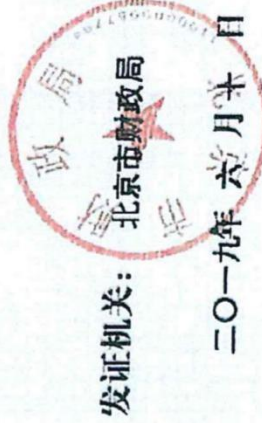 发证机关：北京市财政局
二〇一九年 六 月 十 日